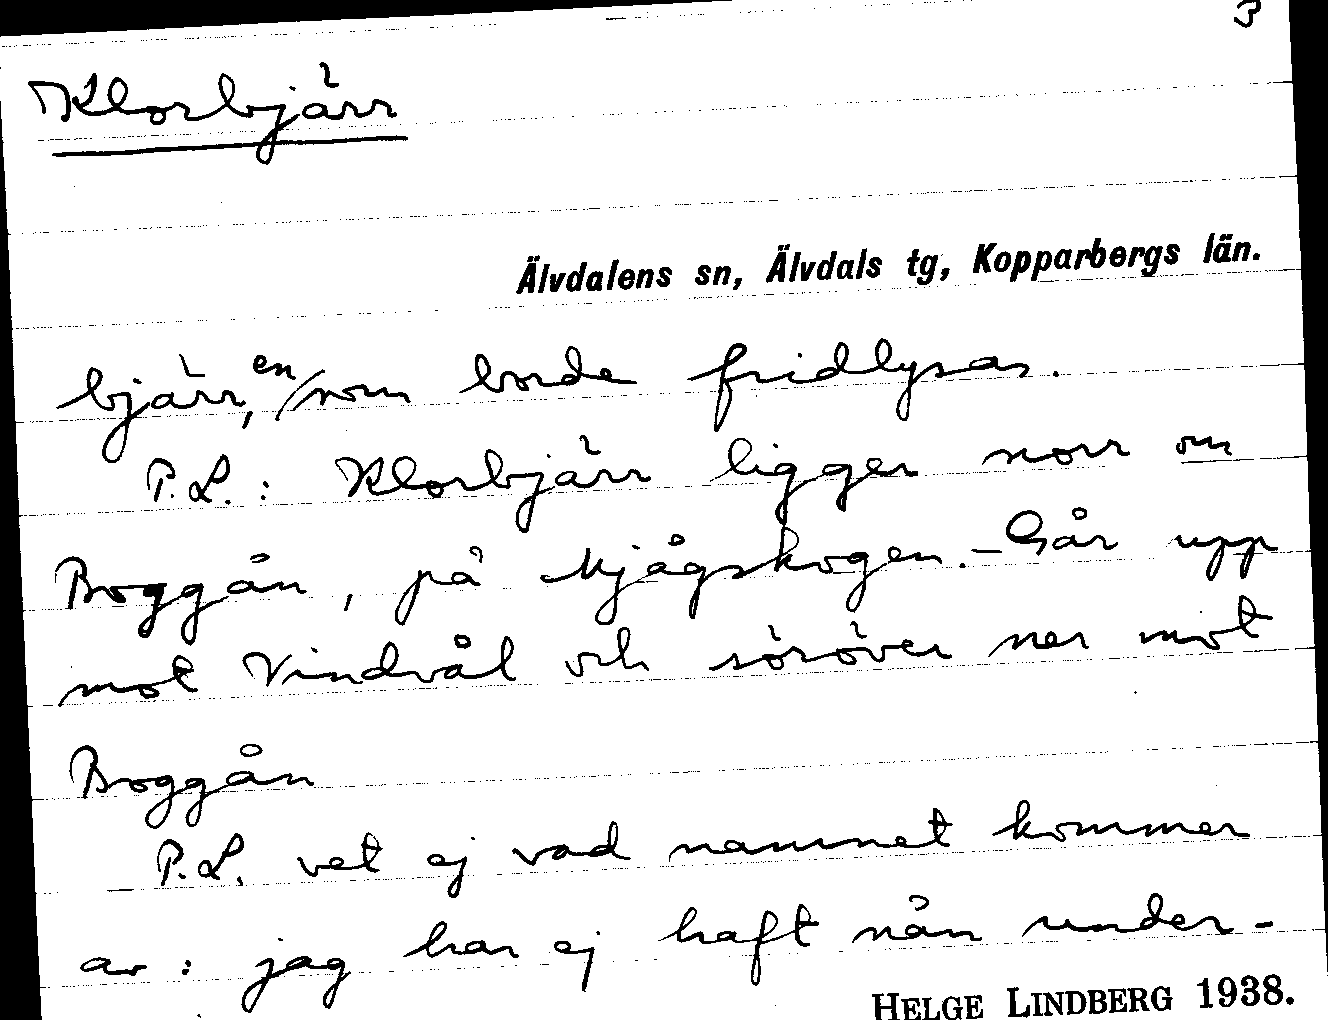 3
Klorbjärr
Älvdalens sn, Älvdals tg, Kopparbergs län.
bjärr, en som borde fridlysas.
P.L.: Klorbjärr ligger norr om
Boggån, på Mjågskogen. - Går upp
mot Vindvål och söröver ner mot
Boggån
P.L. vet ej vad namnet kommer
av: jag har ej haft nån under-
HELGE LINDBERG 1938.